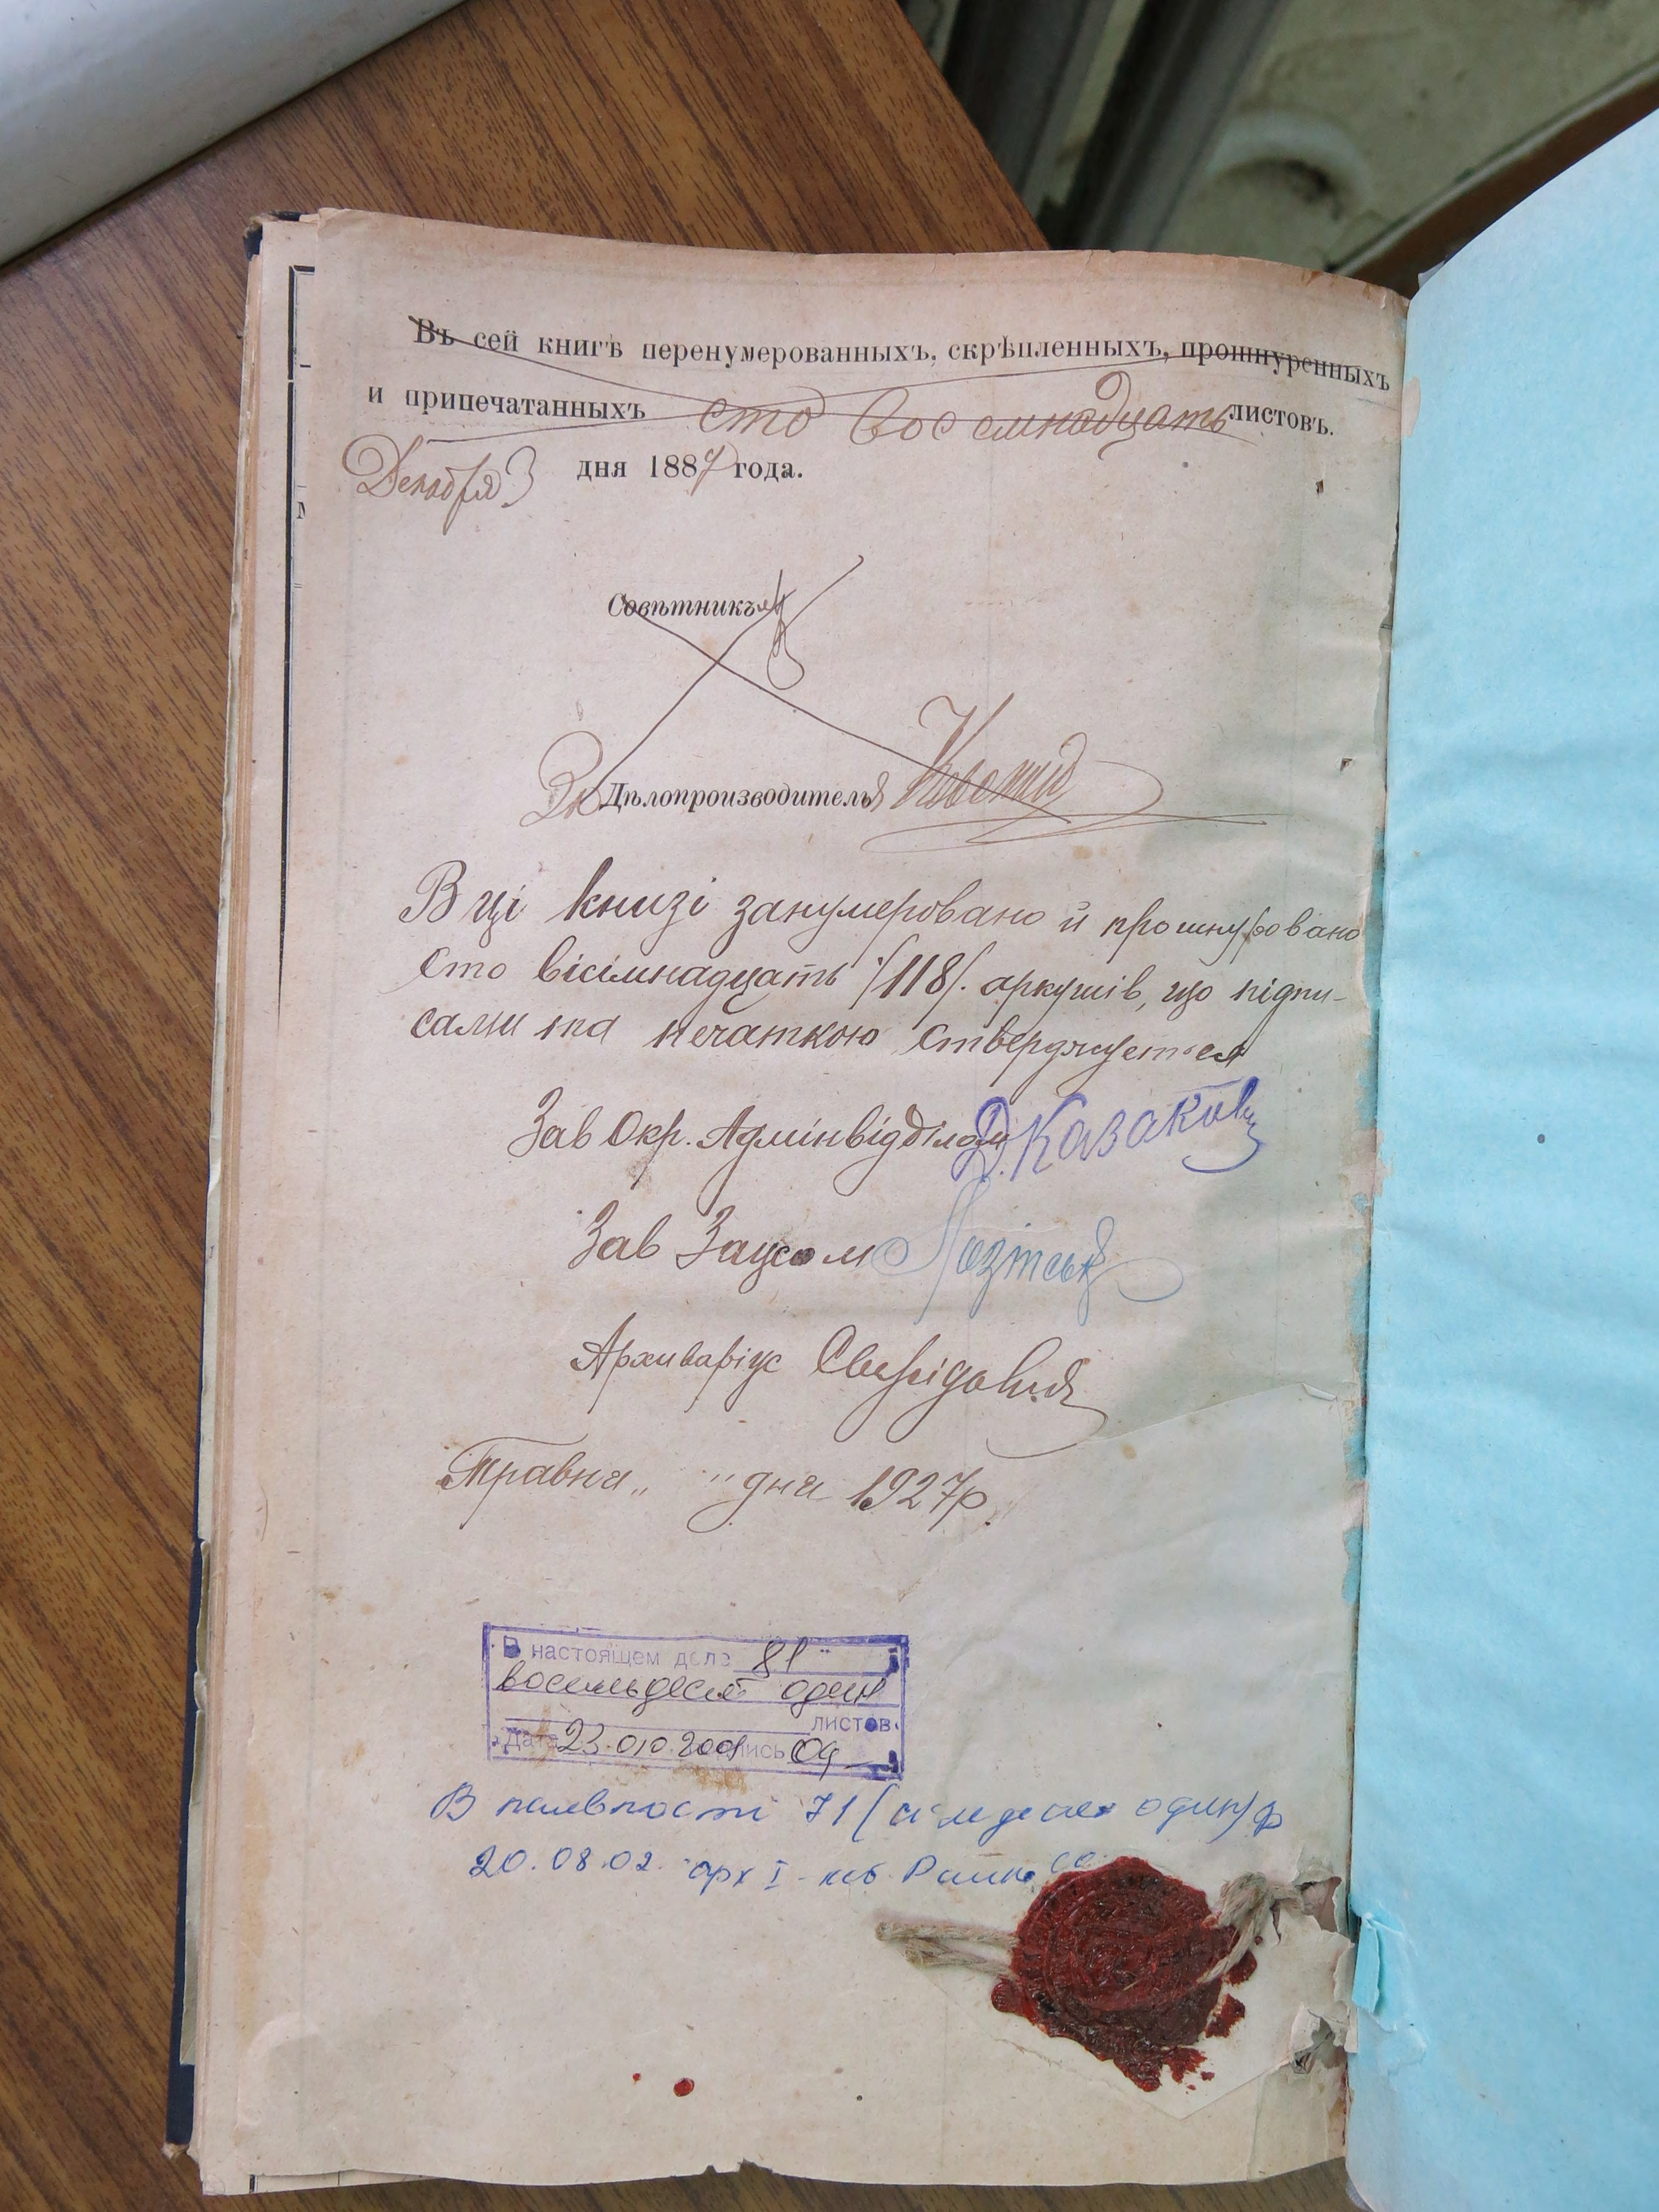 Въ сей книгѣ перенумерованныхъ, скрѣпленныхъ, прошнуренныхъ
и припечатанныхъ сто восемнадцать листовъ.
Декабря 3 дня 1887 года.
Совѣтникъ
Дѣлопроизводитель
В ці книзі занумеровано й прошнуровано
сто вісімнадцать /118/. аркушів, що підпи-
сами та печаткою стверджується
Зав Окр. Адмінвідділом Д. Казаков
Зав Загсом
Архиваріус
Травня „ " дня 1927р.
В настоящем деле 81
восемьдесят один
листов
Дата 23.010.2001 подпись
В наявності 71 (сімдесят один) ф
20.08.02. арх I - кат.